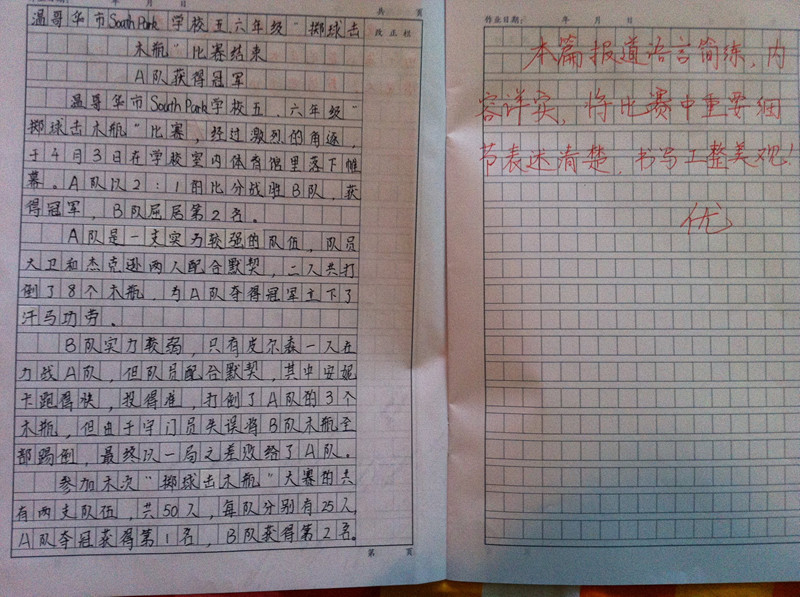 作业日期: 年 月 日 共 页
温哥华市South Park 学校五六年级“掷球击
改正栏
木瓶”比赛结束
A队获得冠军
温哥华市South Park学校五、六年级“
掷球击木瓶”比赛,经过激烈的角逐,
于4月3日在学校室内体育馆里落下帷
幕。A队以2:1的比分战胜B队,获
得冠军,B队屈居第2名。
A队是一支实力较强的队伍,队员
大卫和杰克逊两人配合默契,二人共打
倒了8个木瓶,为A队夺得冠军立下了
汗马功劳。
B队实力较弱,只有皮尔森一人在
力战A队,但队员配合默契,其中安妮
卡跑得快,投得准,打倒了A队的3个
木瓶,但由于守门员失误将B队木瓶全
部踢倒,最终以一局之差败给了A队。
参加本次“掷球击木瓶”大赛的共
有两支队伍,共50人,每队分别有25人,
A队夺冠获得第1名,B队获得第2名。
第 页
作业日期: 年 月 日
本篇报道语言简练,内
容详实,将比赛中重要细
节表达清楚,书写工整美观!
优